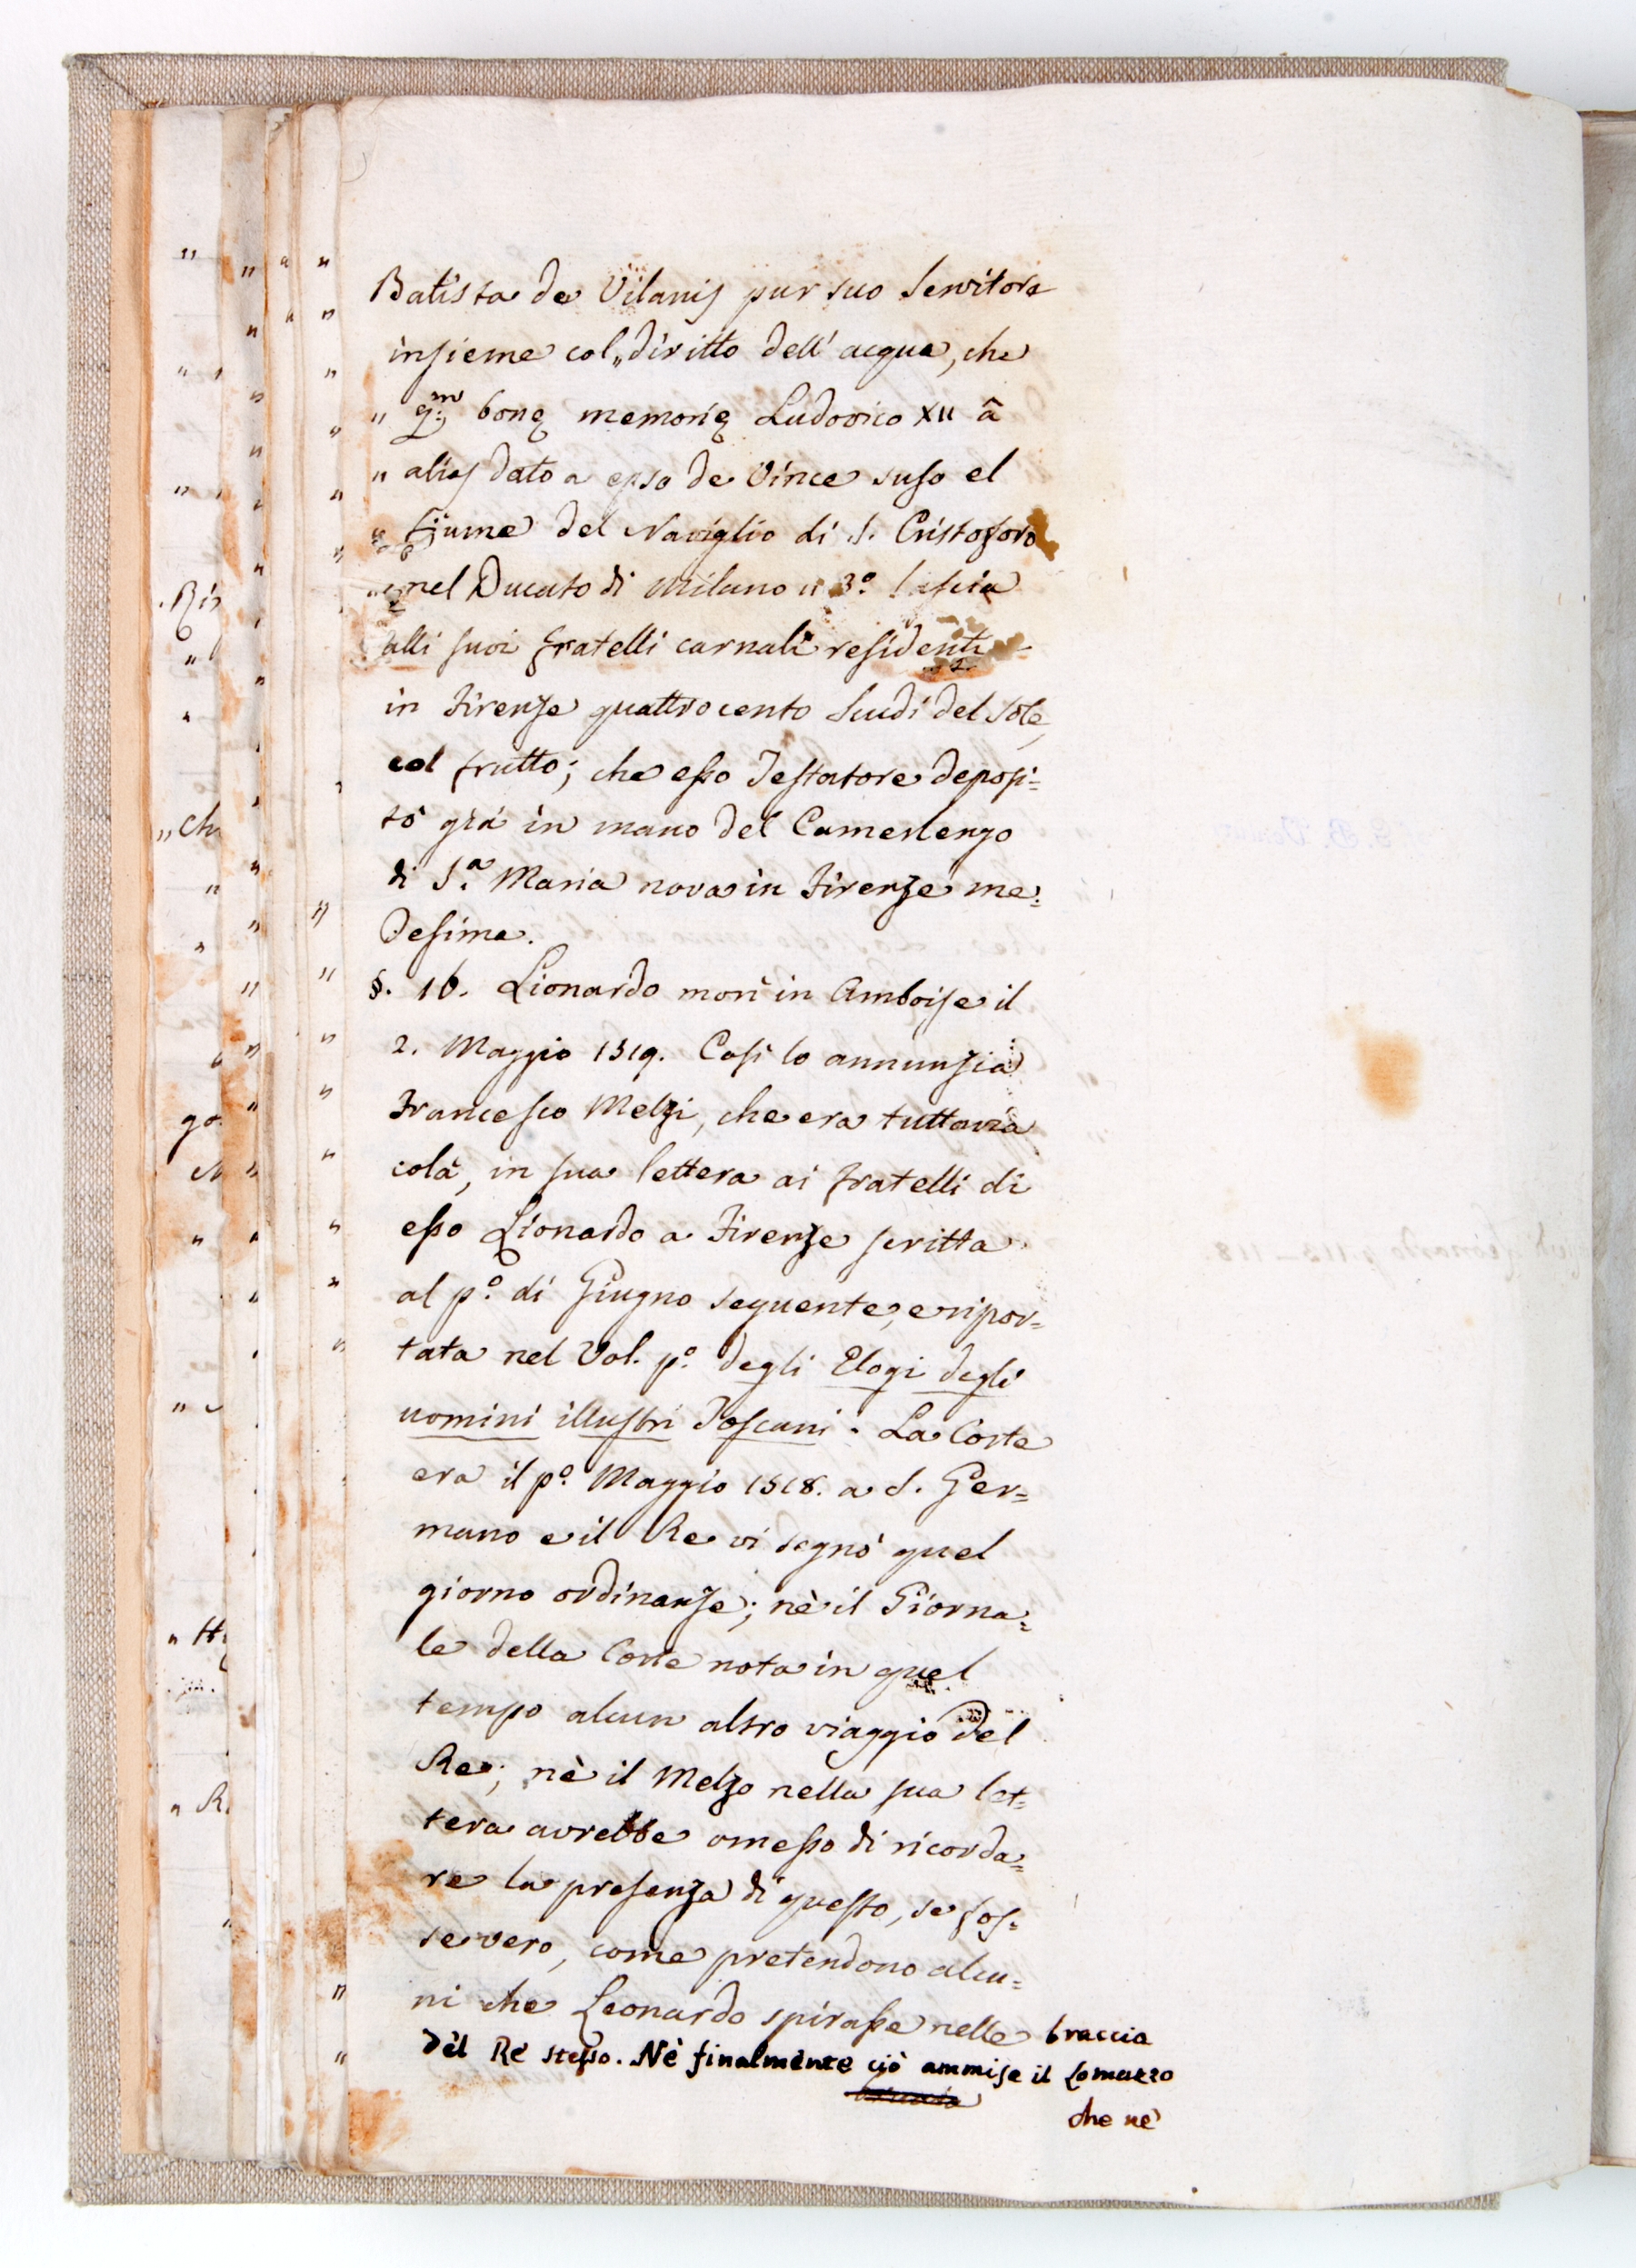 Batista de Vilanis pur suo Servitore
insieme col „ diritto dell' acqua, che
" q.m bonę memorię Ludovico XII â
" alias dato a epso de Vince suso el
" fiume del Naviglio di S. Cristoforo
" nel Ducato di Milano „ 3.º lascia
alli suoi fratelli carnali residenti
in Firenze quattrocento Scudi del Sole,
col frutto; che esso Testatore deposi=
tò già in mano del Camerlengo
di S.a Maria nova in Firenze me=
desima.
§. 16. Lionardo morì in Amboise il
2. Maggio 1519. Così lo annunzia
Francesco Melzi, che era tuttavia
colà, in sua lettera ai fratelli di
esso Lionardo a Firenze scritta
al p.º di Giugno seguente, e ripor=
tata nel Vol. p.º degli Elogi degli
uomini illustri Toscani. La Corte
era il p.º Maggio 1518. a S. Ger=
mano e il Re vi segnò quel
giorno ordinanze; nè il Giorna=
le della Corte nota in quel
tempo alcun altro viaggio del
Re; nè il Melzo nella sua let=
tera avrebbe omesso di ricorda=
re la presenza di questo, se fos=
se vero, come pretendono alcu=
ni che Leonardo spirasse nelle braccia
del Re stesso. Nè finalmente ciò ammise il Lomazzo
che nè